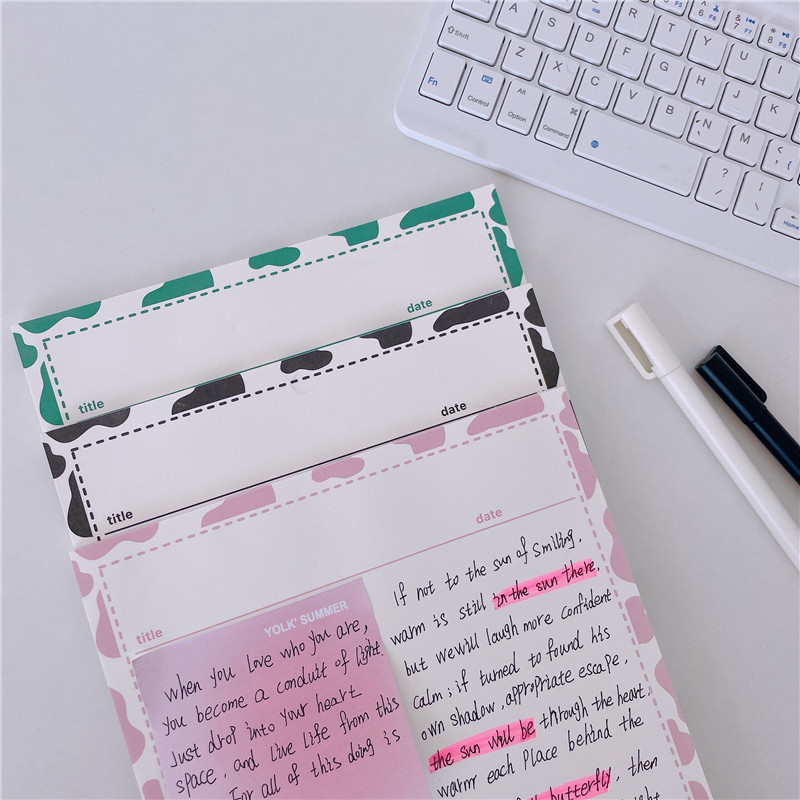 A S D F G H J K
Shift Z X C V B N M
Fn Control Alt Option Command
Home
date
title
date
title
date
title
YOLK' SUMMER
when you love who you are,
you become a conduit of light
Just drop into your heart
space, and live life from this
For all of this doing is
If not to the sun of smiling,
warm is still in the sun there,
but we will laugh more confident
calm; if turned to found his
own shadow, appropriate escape,
the sun will be through the heart,
warm each place behind the
butterfly, then